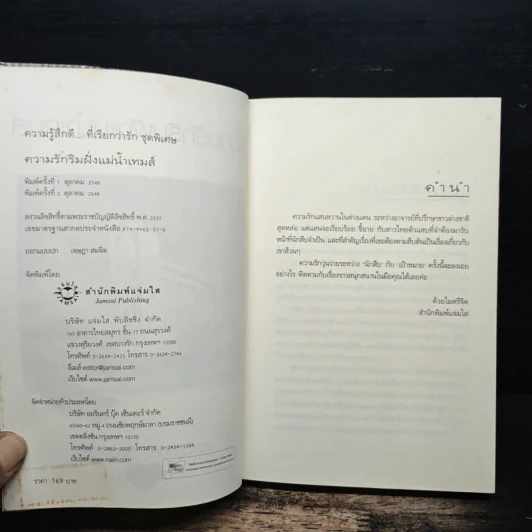 ความรู้สึกดี... ที่เรียกว่ารัก ชุดพิเศษ
ความรักริมฝั่งแม่น้ำเทมส์
พิมพ์ครั้งที่ 1 ตุลาคม 2548
พิมพ์ครั้งที่ 2 ตุลาคม 2548
สงวนลิขสิทธิ์ตามพระราชบัญญัติลิขสิทธิ์ พ.ศ. 2537
เลขมาตรฐานสากลประจำหนังสือ 974-9962-37-8
ออกแบบปก เจษฎา สมจิต
จัดพิมพ์โดย
สำนักพิมพ์แจ่มใส
Jamsai Publishing
บริษัท แจ่มใส พับลิชชิ่ง จำกัด
163 อาคารไทยสมุทร ชั้น 17 ถนนสุรวงศ์
แขวงสุริยวงศ์ เขตบางรัก กรุงเทพฯ 10500
โทรศัพท์ 0-2634-2425 โทรสาร 0-2634-2766
อีเมล์ editor@jamsai.com
เว็บไซต์ www.jamsai.com
จัดจำหน่ายทั่วประเทศโดย
บริษัท อมรินทร์ บุ๊ค เซ็นเตอร์ จำกัด
65/60-62 หมู่ 4 ถนนชัยพฤกษ์มาลา (บรมราชชนนี)
เขตตลิ่งชัน กรุงเทพฯ 10170
โทรศัพท์ 0-2882-2000 โทรสาร 0-2434-1384
เว็บไซต์ www.naiin.com
ราคา 169 บาท
คำนำ
ความรักแสนหวานในต่างแดน ระหว่างอาจารย์ที่ปรึกษาชาวต่างชาติ
สุดหล่อ แต่แสนจะเรียบร้อย ขี้อาย กับสาวไทยตัวแสบที่จำต้องมารับ
หน้าที่นักสืบจำเป็น และที่สำคัญเรื่องที่เธอต้องตามสืบดันเป็นเรื่องเกี่ยวกับ
เขาล้วนๆ
ความรักวุ่นวายระหว่าง 'นักสืบ' กับ 'เป้าหมาย' ครั้งนี้จะลงเอย
อย่างไร ติดตามกับเรื่องราวสนุกสนานในมือคุณได้เลยค่ะ
ด้วยไมตรีจิต
สำนักพิมพ์แจ่มใส